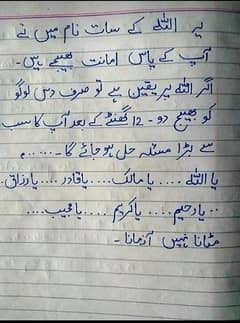 یہ اللہ کے سات نام میں نے
آپ کے پاس امانت بھیجے ہیں۔
اگر اللہ پر یقین ہے تو صرف دس لوگو
کو بھیج دو۔ 12 گھنٹے کے بعد آپ کا سب
سے بڑا مسئلہ حل ہو جائے گا۔.....
یا اللہ .... یا مالک .... یا قادر .... یا رزاق..
.. یا رحیم .... یا کریم .... یا مجیب ....
مٹانا نہیں آزمانا۔